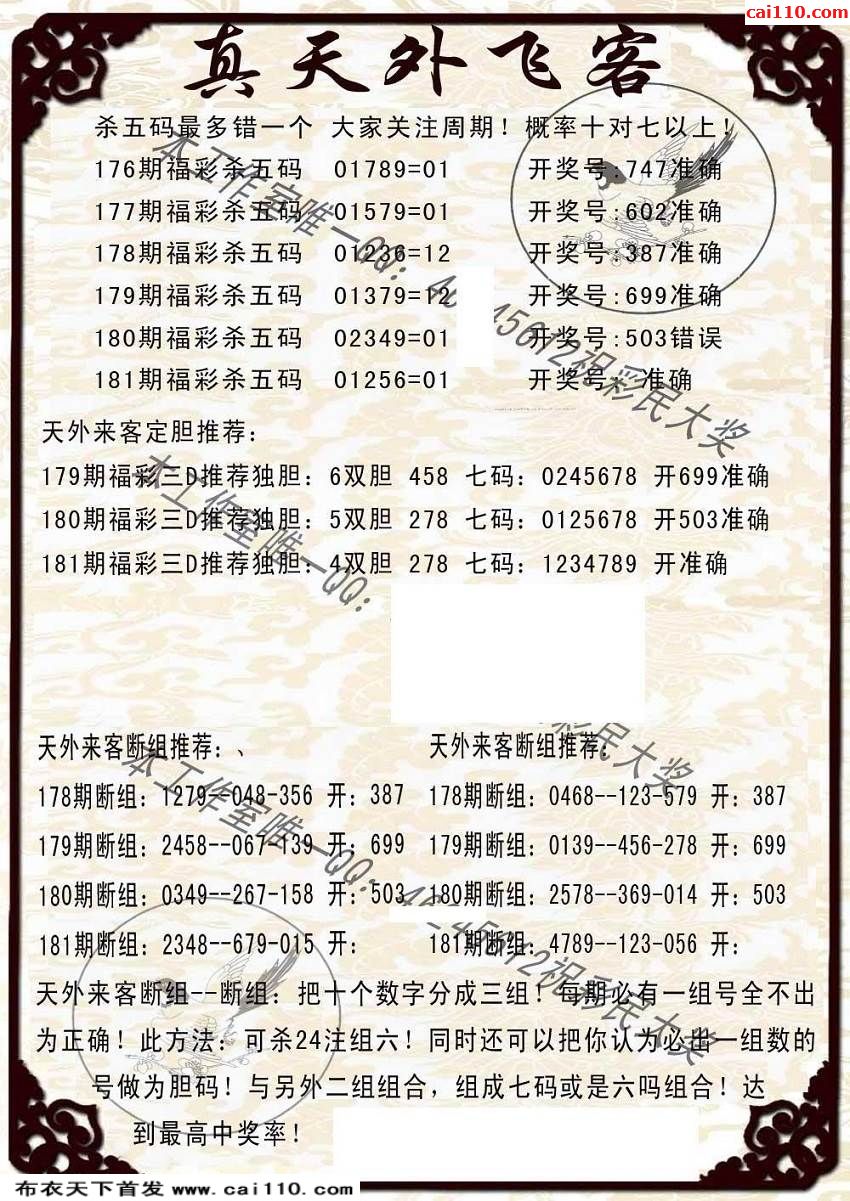 cai110.com
真天外飞客
杀五码最多错一个 大家关注周期！概率十对七以上！
176期福彩杀五码 01789=01 开奖号:747准确
177期福彩杀五码 01579=01 开奖号:602准确
178期福彩杀五码 01236=12 开奖号:387准确
179期福彩杀五码 01379=12 开奖号:699准确
180期福彩杀五码 02349=01 开奖号:503错误
181期福彩杀五码 01256=01 开奖号: 准确
天外来客定胆推荐：
179期福彩三D推荐独胆：6双胆 458 七码：0245678 开699准确
180期福彩三D推荐独胆：5双胆 278 七码：0125678 开503准确
181期福彩三D推荐独胆：4双胆 278 七码：1234789 开准确
天外来客断组推荐：、 天外来客断组推荐：
178期断组：1279--048-356 开：387 178期断组：0468--123-579 开：387
179期断组：2458--067-139 开：699 179期断组：0139--456-278 开：699
180期断组：0349--267-158 开：503 180期断组：2578--369-014 开：503
181期断组：2348--679-015 开： 181期断组：4789--123-056 开：
天外来客断组--断组：把十个数字分成三组！每期必有一组号全不出
为正确！此方法：可杀24注组六！同时还可以把你认为必出一组数的
号做为胆码！与另外二组组合，组成七码或是六吗组合！达
到最高中奖率！
本工作室唯一QQ：
祝彩民大奖
本工作室唯一QQ：
彩民大奖
本工作室唯一QQ：
祝彩民大奖
布衣天下首发 www.cai110.com